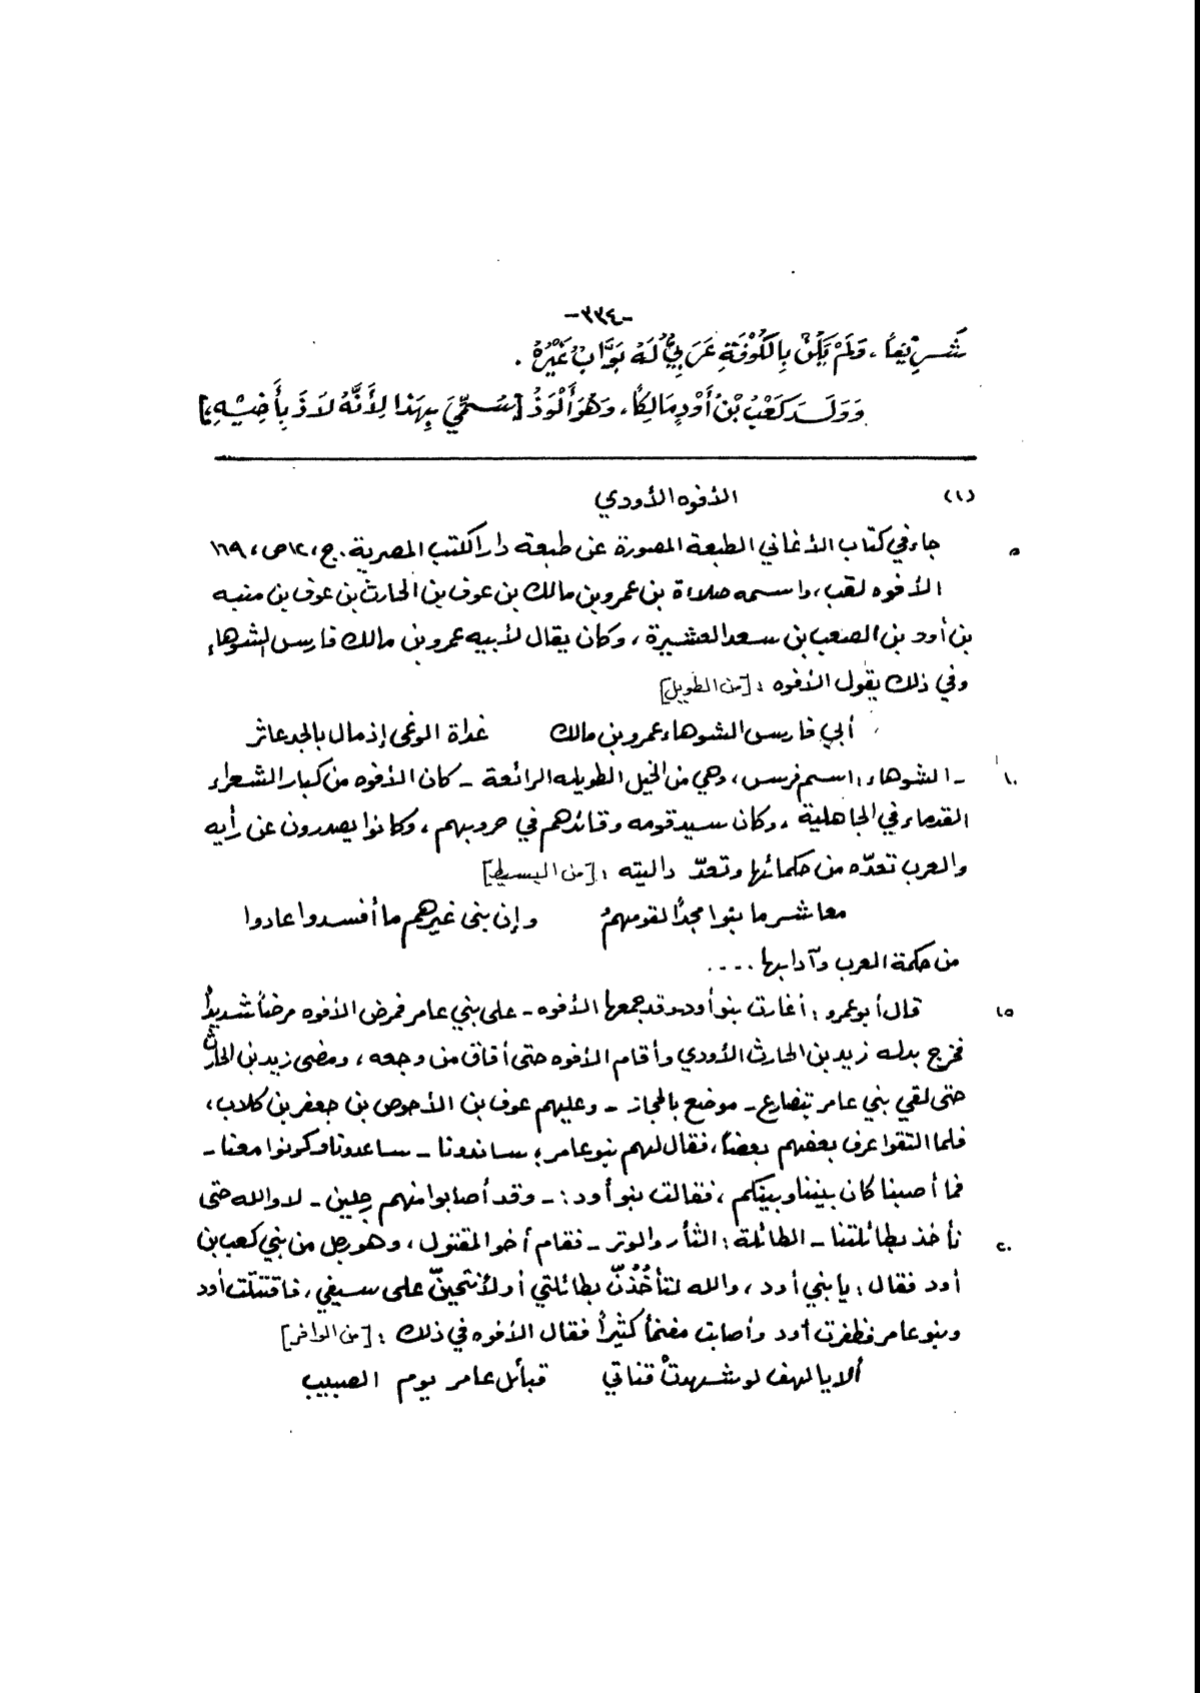 -٣٣٤-
شَرِيفاً، وَلَمْ يَكُنْ بِالكُوْفَةِ عَرَبِيٌّ لَهُ بَوَّابٌ غَيْرُهُ .
وَوَلَدَ كَعْبُ بْنُ أَوْدٍ مَالِكاً، وَهُوَ أَلْوَذُ [سُمِّيَ بِهَذا لِأَنَّهُ لَاذَ بِأَخِيْهِ،]
(١) الأفوه الأودي
٥ جاء في كتاب الأغاني الطبعة المصورة عن طبعة دار الكتب المصرية. ج، ١٢ ص، ١٦٩
الأفوه لقب، واسمه صلاءة بن عمرو بن مالك بن عوف بن الحارث بن عوف بن منبه
بن أود بن الصعب بن سعد العشيرة، وكان يقال لأبيه عمرو بن مالك فارس الشوهاء
وفي ذلك يقول الأفوه : [من الطويل]
أبي فارس الشوهاء عمرو بن مالك غداة الوغى إذ مال بالجد عاثر
١٠ - الشوهاء: اسم فرس، وهي من الخيل الطويله الرائعة - كان الأفوه من كبار الشعراء
القدماء في الجاهلية ، وكان سيد قومه وقائدهم في حروبهم، وكانوا يصدرون عن رأيه
والعرب تعدّه من حكمائها وتعدّ داليته : [من البسيط]
معاشر ما بنوا مجداً لقومهمُ وإن بنى غيرهم ما أفسدوا عادوا
من حكمة العرب وآدابها ....
١٥ قال أبو عمرو : أغارت بنو أود - وقد جمعها الأفوه - على بني عامر فمرض الأفوه مرضاً شديداً
فخرج بدله زيد بن الحارث الأودي وأقام الأفوه حتى أفاق من وجعه ، ومضى زيد بن الحارث
حتى لقي بني عامر بتضارع - موضع بالحجاز - وعليهم عوف بن الأحوص بن جعفر بن كلاب،
فلما التقوا عرف بعضهم بعضاً، فقال لهم بنو عامر؛ ساندونا - ساعدونا وكونوا معنا -
فما أصبنا كان بيننا وبينكم ، فقالت بنو أود : - وقد أصابوا منهم رجلين - لا والله حتى
٢٠ نأخذ بطائلتنا - الطائلة : الثأر والوتر - فقام أخو المقتول، وهو رجل من بني كعب بن
أود فقال : يا بني أود ، والله لتأخُذُنّ بطائلتي أو لأنتحينّ على سيفي، فاقتتلت أود
وبنو عامر فظفرت أود وأصابت مغنماً كثيراً فقال الأفوه في ذلك : [من الوافر]
ألا يا لهف لو شهدتْ قناتي قبائل عامر يوم الصبيب